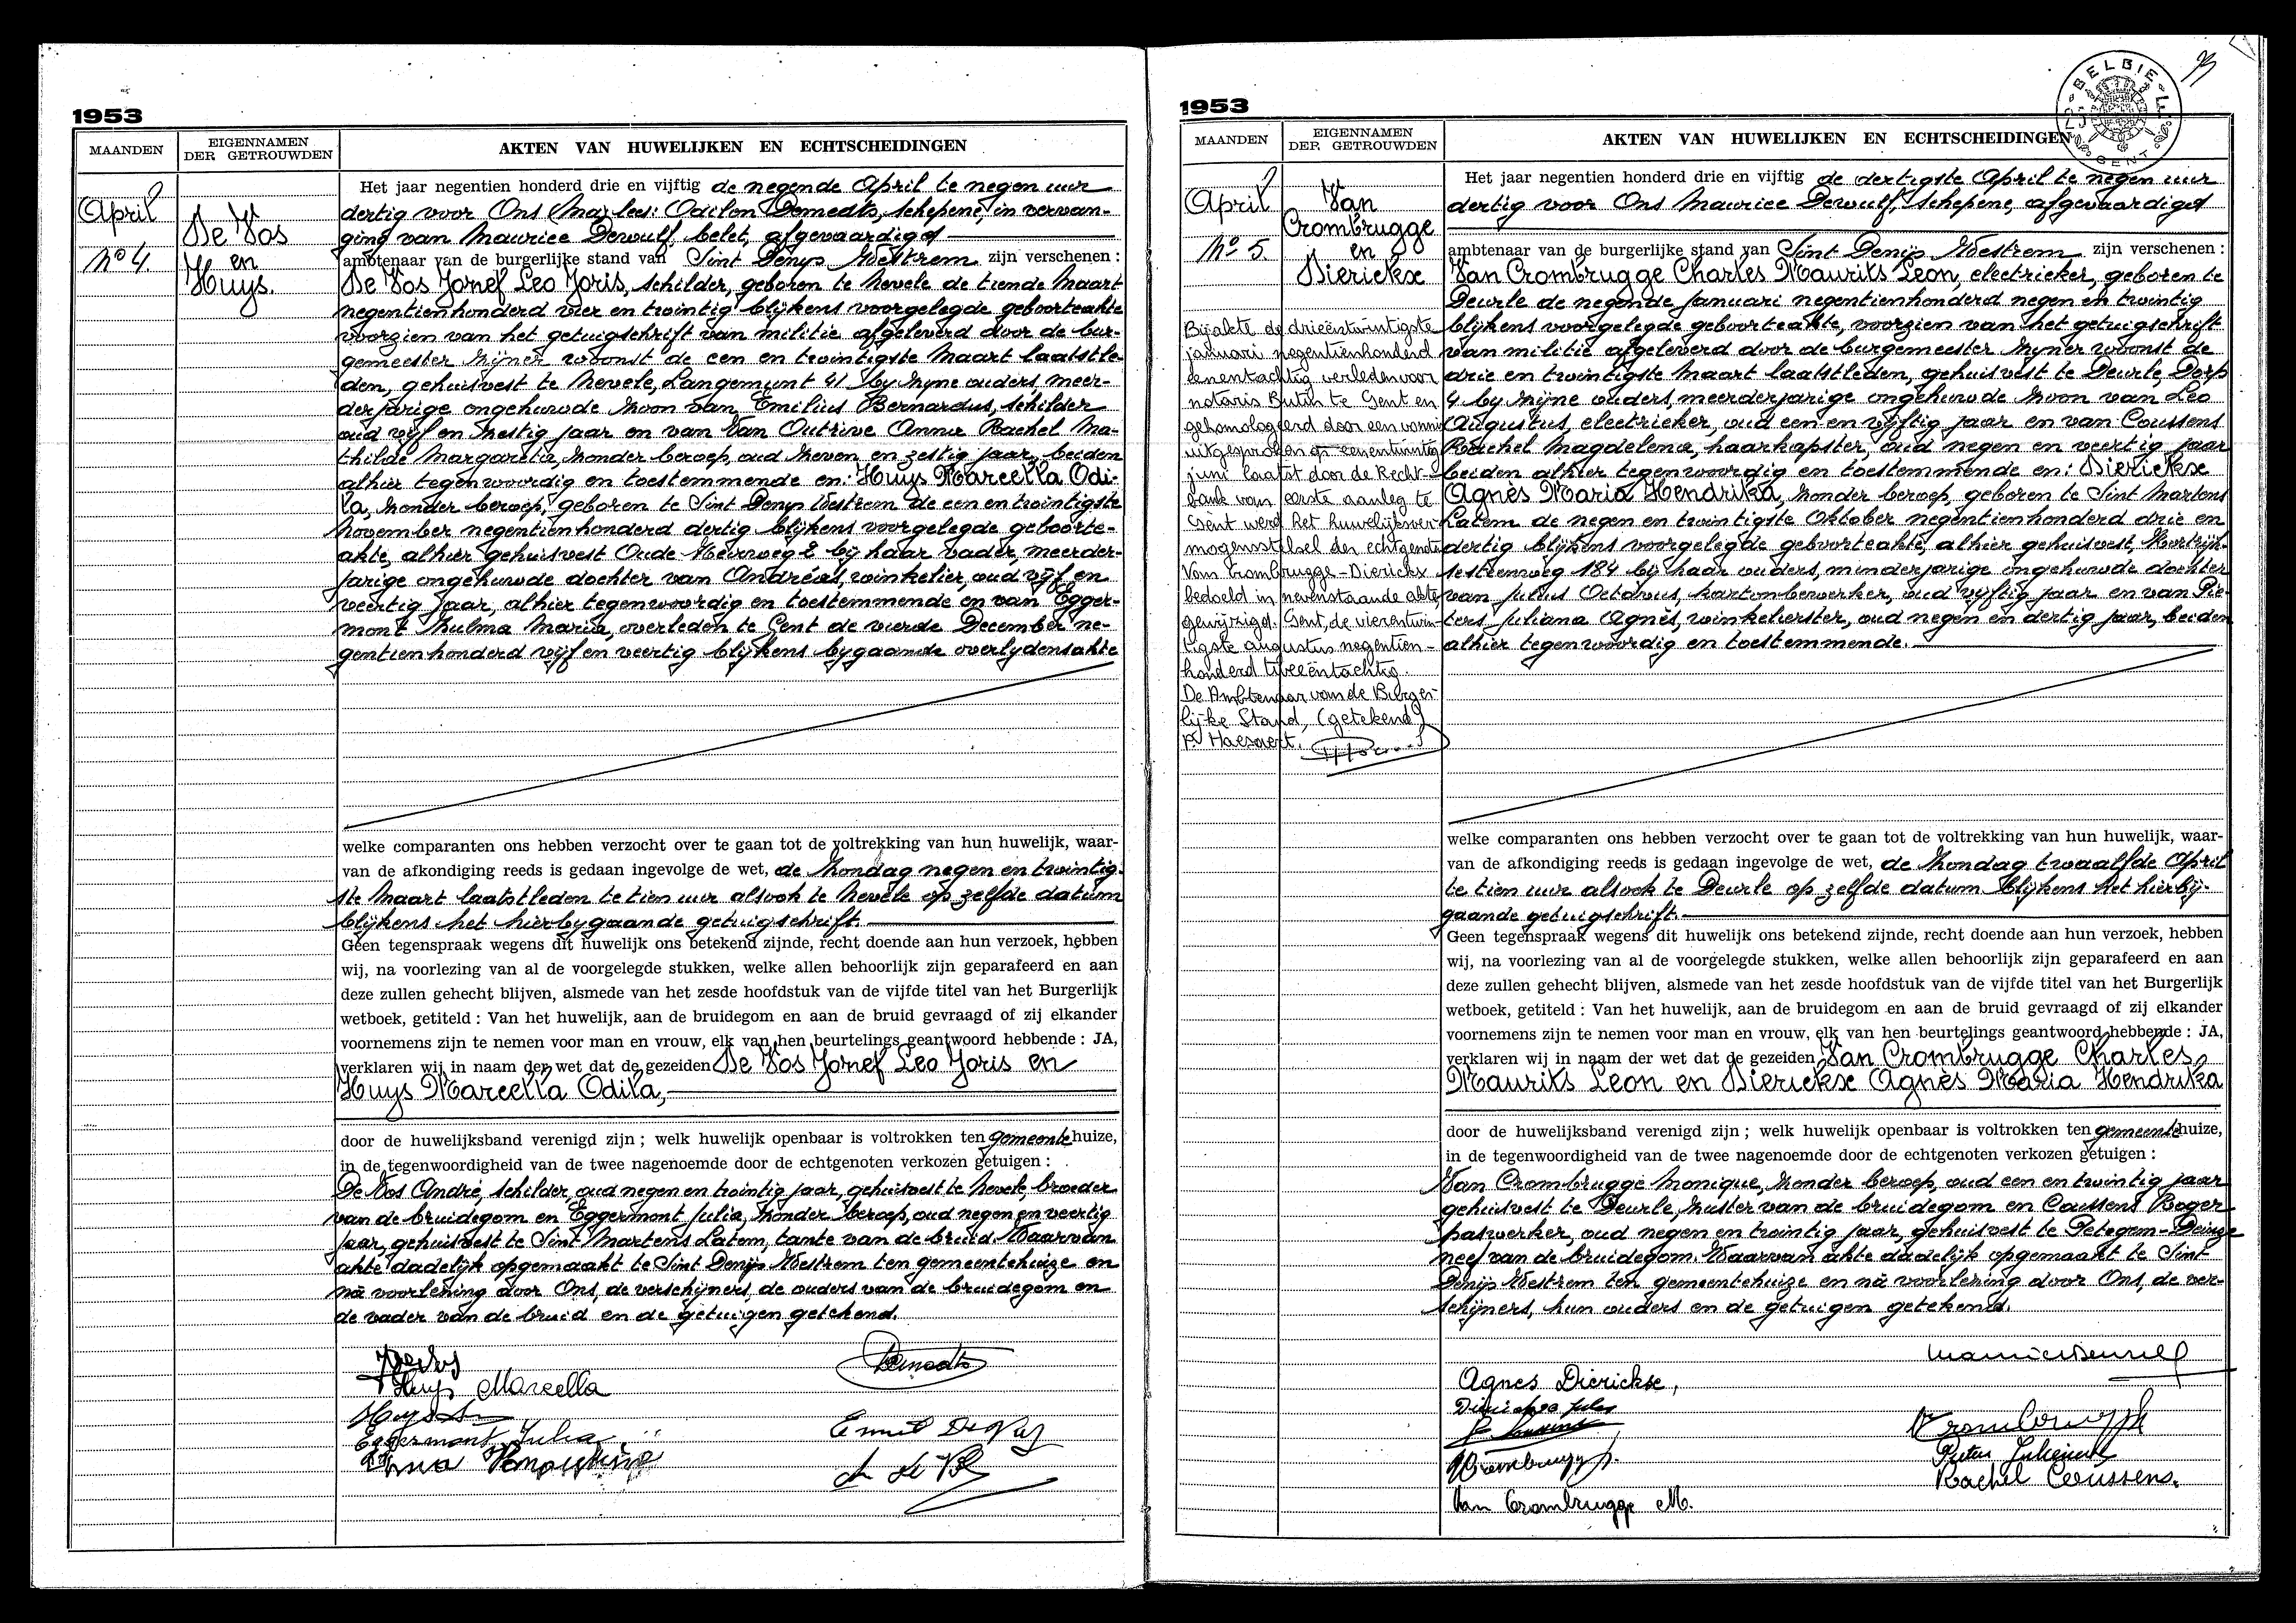 1953
MAANDEN
EIGENNAMEN
DER GETROUWDEN
AKTEN VAN HUWELIJKEN EN ECHTSCHEIDINGEN
April
No 4.
De Vos
en
Huys.
Het jaar negentien honderd drie en vijftig de negende April te negen uur
dertig voor Ons (Mar lees: Odilon Demedts, schepene, in vervan-
ging van Maurice Dewulf, belet, afgevaardigd
ambtenaar van de burgerlijke stand van Sint Denys Westrem zijn verschenen :
De Vos Jozef Leo Joris, schilder, geboren te Nevele de tiende Maart
negentienhonderd vier en twintig blijkens voorgelegde geboorteakte
voorzien van het getuigschrift van militie afgeleverd door de bur-
gemeester zijner woonst de een en twintigste Maart laatstle-
den, gehuisvest te Nevele, Langemunt 41 by zyne ouders, meer-
derjarige ongehuwde zoon van Emilius Bernardus, schilder
oud vijf en zestig jaar en van Van Outrive Anna Rachel Ma-
thilde Margareta, zonder beroep, oud zeven en zestig jaar, beiden
alhier tegenwoordig en toestemmende en: Huys Marcella Odi-
la, zonder beroep, geboren te Sint Denys Westrem de een en twintigste
November negentienhonderd dertig blijkens voorgelegde geboorte-
akte, alhier gehuisvest Oude Heirweg 2 bij haar vader, meerder-
jarige ongehuwde dochter van Andréas, winkelier, oud vijf en
veertig jaar, alhier tegenwoordig en toestemmende en van Egger-
mont Zulma Maria, overleden te Gent de vierde December ne-
gentienhonderd vijf en veertig blijkens bygaande overlydensakte
welke comparanten ons hebben verzocht over te gaan tot de voltrekking van hun huwelijk, waar-
van de afkondiging reeds is gedaan ingevolge de wet, de Zondag negen en twintig-
ste Maart laatstleden te tien uur alsook te Nevele op zelfde datum
blijkens het hierbygaande getuigschrift.
Geen tegenspraak wegens dit huwelijk ons betekend zijnde, recht doende aan hun verzoek, hebben
wij, na voorlezing van al de voorgelegde stukken, welke allen behoorlijk zijn geparafeerd en aan
deze zullen gehecht blijven, alsmede van het zesde hoofdstuk van de vijfde titel van het Burgerlijk
wetboek, getiteld : Van het huwelijk, aan de bruidegom en aan de bruid gevraagd of zij elkander
voornemens zijn te nemen voor man en vrouw, elk van hen beurtelings geantwoord hebbende : JA,
verklaren wij in naam der wet dat de gezeiden De Vos Jozef Leo Joris en
Huys Marcella Odila,
door de huwelijksband verenigd zijn ; welk huwelijk openbaar is voltrokken ten gemeentehuize,
in de tegenwoordigheid van de twee nagenoemde door de echtgenoten verkozen getuigen :
De Vos André, schilder, oud negen en twintig jaar, gehuisvest te Nevele, broeder
van de bruidegom en Eggermont Julia, zonder beroep, oud negen en veertig
jaar, gehuisvest te Sint Martens Latem, tante van de bruid. Waarvan
akte dadelijk opgemaakt te Sint Denijs Westrem ten gemeentehuize en
nà voorlezing door Ons, de verschijners, de ouders van de bruidegom en
de vader van de bruid en de getuigen getekend.
Demedts
Huys Marcella
Huys
Eggermont Julia
Emiel De Vos
1953
MAANDEN
EIGENNAMEN
DER GETROUWDEN
AKTEN VAN HUWELIJKEN EN ECHTSCHEIDINGEN
BELGIE
GENT
April
No 5.
Van
Crombrugge
en
Dierickx
Bij akte de drieëntwintigste
januari negentienhonderd
eenentachtig verleden voor
notaris Butin te Gent en
gehomologeerd door een vonnis
uitgesproken op eenentwintig
juni laatst door de Recht-
bank van eerste aanleg te
Gent werd het huwelijksver-
mogensstelsel der echtgenoten
Van Crombrugge-Dierickx
bedoeld in nevenstaande akte,
gewijzigd. Gent, de vierentwin-
tigste augustus negentien-
honderd tweeëntachtig.
De Ambtenaar van de Burger-
lijke Stand, (getekend)
P. Haesaert.
Het jaar negentien honderd drie en vijftig de dertigste April te negen uur
dertig voor Ons Maurice Dewulf, schepene, afgevaardigd
ambtenaar van de burgerlijke stand van Sint Denijs Westrem zijn verschenen :
Van Crombrugge Charles Maurits Leon, electrieker, geboren te
Deurle de negende Januari negentienhonderd negen en twintig
blijkens voorgelegde geboorteakte, voorzien van het getuigschrift
van militie afgeleverd door de burgemeester zijner woonst de
drie en twintigste Maart laatstleden, gehuisvest te Deurle, Dorp
4 by zijne ouders, meerderjarige ongehuwde zoon van Leo
Augustus, electrieker, oud een en vijftig jaar en van Coussens
Rachel Magdelena, haarkapster, oud negen en veertig jaar
beiden alhier tegenwoordig en toestemmende en: Dierickx
Agnès Maria Hendrika, zonder beroep, geboren te Sint Martens
Latem de negen en twintigste Oktober negentienhonderd drie en
dertig blijkens voorgelegde geboorteakte, alhier gehuisvest, Kortrijk-
sesteenweg 184 bij haar ouders, minderjarige ongehuwde dochter
van Julius Octavus, kartonbewerker, oud vijftig jaar en van Pie-
ters Juliana Agnès, winkelierster, oud negen en dertig jaar, beiden
alhier tegenwoordig en toestemmende.
welke comparanten ons hebben verzocht over te gaan tot de voltrekking van hun huwelijk, waar-
van de afkondiging reeds is gedaan ingevolge de wet, de Zondag twaalfde April
te tien uur alsook te Deurle op zelfde datum blijkens het hierbij-
gaande getuigschrift.
Geen tegenspraak wegens dit huwelijk ons betekend zijnde, recht doende aan hun verzoek, hebben
wij, na voorlezing van al de voorgelegde stukken, welke allen behoorlijk zijn geparafeerd en aan
deze zullen gehecht blijven, alsmede van het zesde hoofdstuk van de vijfde titel van het Burgerlijk
wetboek, getiteld : Van het huwelijk, aan de bruidegom en aan de bruid gevraagd of zij elkander
voornemens zijn te nemen voor man en vrouw, elk van hen beurtelings geantwoord hebbende : JA,
verklaren wij in naam der wet dat de gezeiden Van Crombrugge Charles
Maurits Leon en Dierickx Agnès Maria Hendrika
door de huwelijksband verenigd zijn ; welk huwelijk openbaar is voltrokken ten gemeentehuize,
in de tegenwoordigheid van de twee nagenoemde door de echtgenoten verkozen getuigen :
Van Crombrugge Monique, zonder beroep, oud een en twintig jaar
gehuisvest te Deurle, zuster van de bruidegom en Coussens Roger
paswerker, oud negen en twintig jaar, gehuisvest te Petegem-Deinze
neef van de bruidegom. Waarvan akte dadelijk opgemaakt te Sint
Denijs Westrem ten gemeentehuize en nà voorlezing door Ons, de ver-
schijners, hun ouders en de getuigen getekend.
Agnes Dierickx,
Dierickx Jules
Rachel Coussens.
Van Crombrugge M.